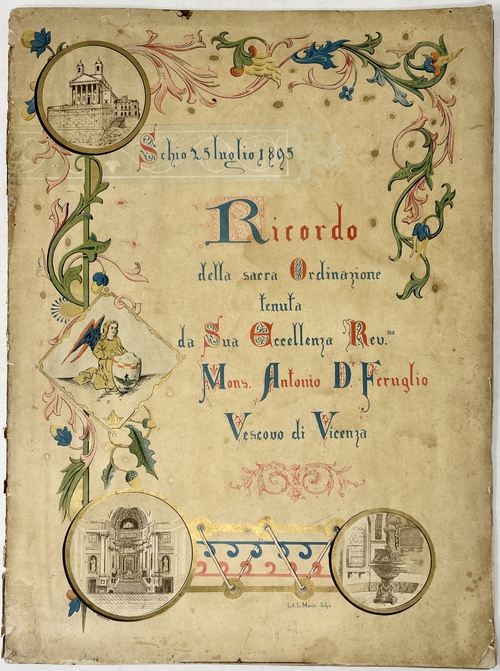 Schio 25 luglio 1895
Ricordo
della sacra Ordinazione
tenuta
da Sua Eccellenza Rev.ma
Mons. Antonio D Feruglio
Vescovo di Vicenza
Lit. L. Marin - Schio